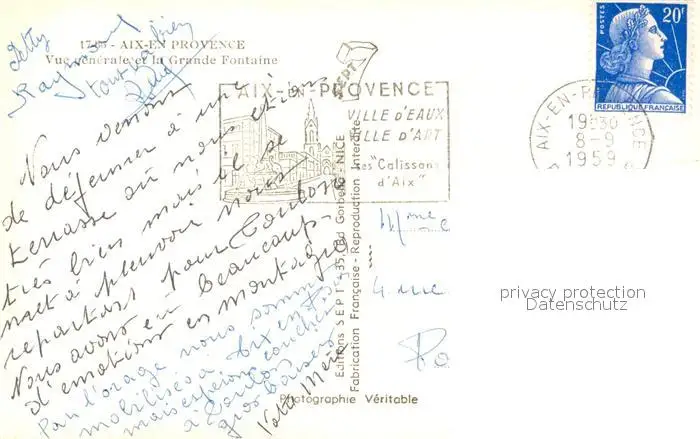 1785 - AIX-EN PROVENCE
Vue générale et la Grande Fontaine
Raymond
Nous venons
de déjeuner à une
terrasse où nous étions
très bien mais il se
met à pleuvoir nous
repartons pour Toulon
Nous avons eu beaucoup
d'émotions en montagne
Par l'orage nous sommes
mobilisés à Aix en
mais espérons coucher
à Toulon
gros baisers
Votre Mère
AIX-EN-PROVENCE
VILLE D'EAUX
VILLE D'ART
ses "Calissons
d'Aix"
Editions SEPT - 35, Bd Gorbella - NICE
Fabrication Française - Reproduction Interdite
Photographie Véritable
POSTES
20F
REPUBLIQUE FRANÇAISE
AIX-EN-PROVENCE
1930
8-9
1959
Mme
4 rue
privacy protection
Datenschutz